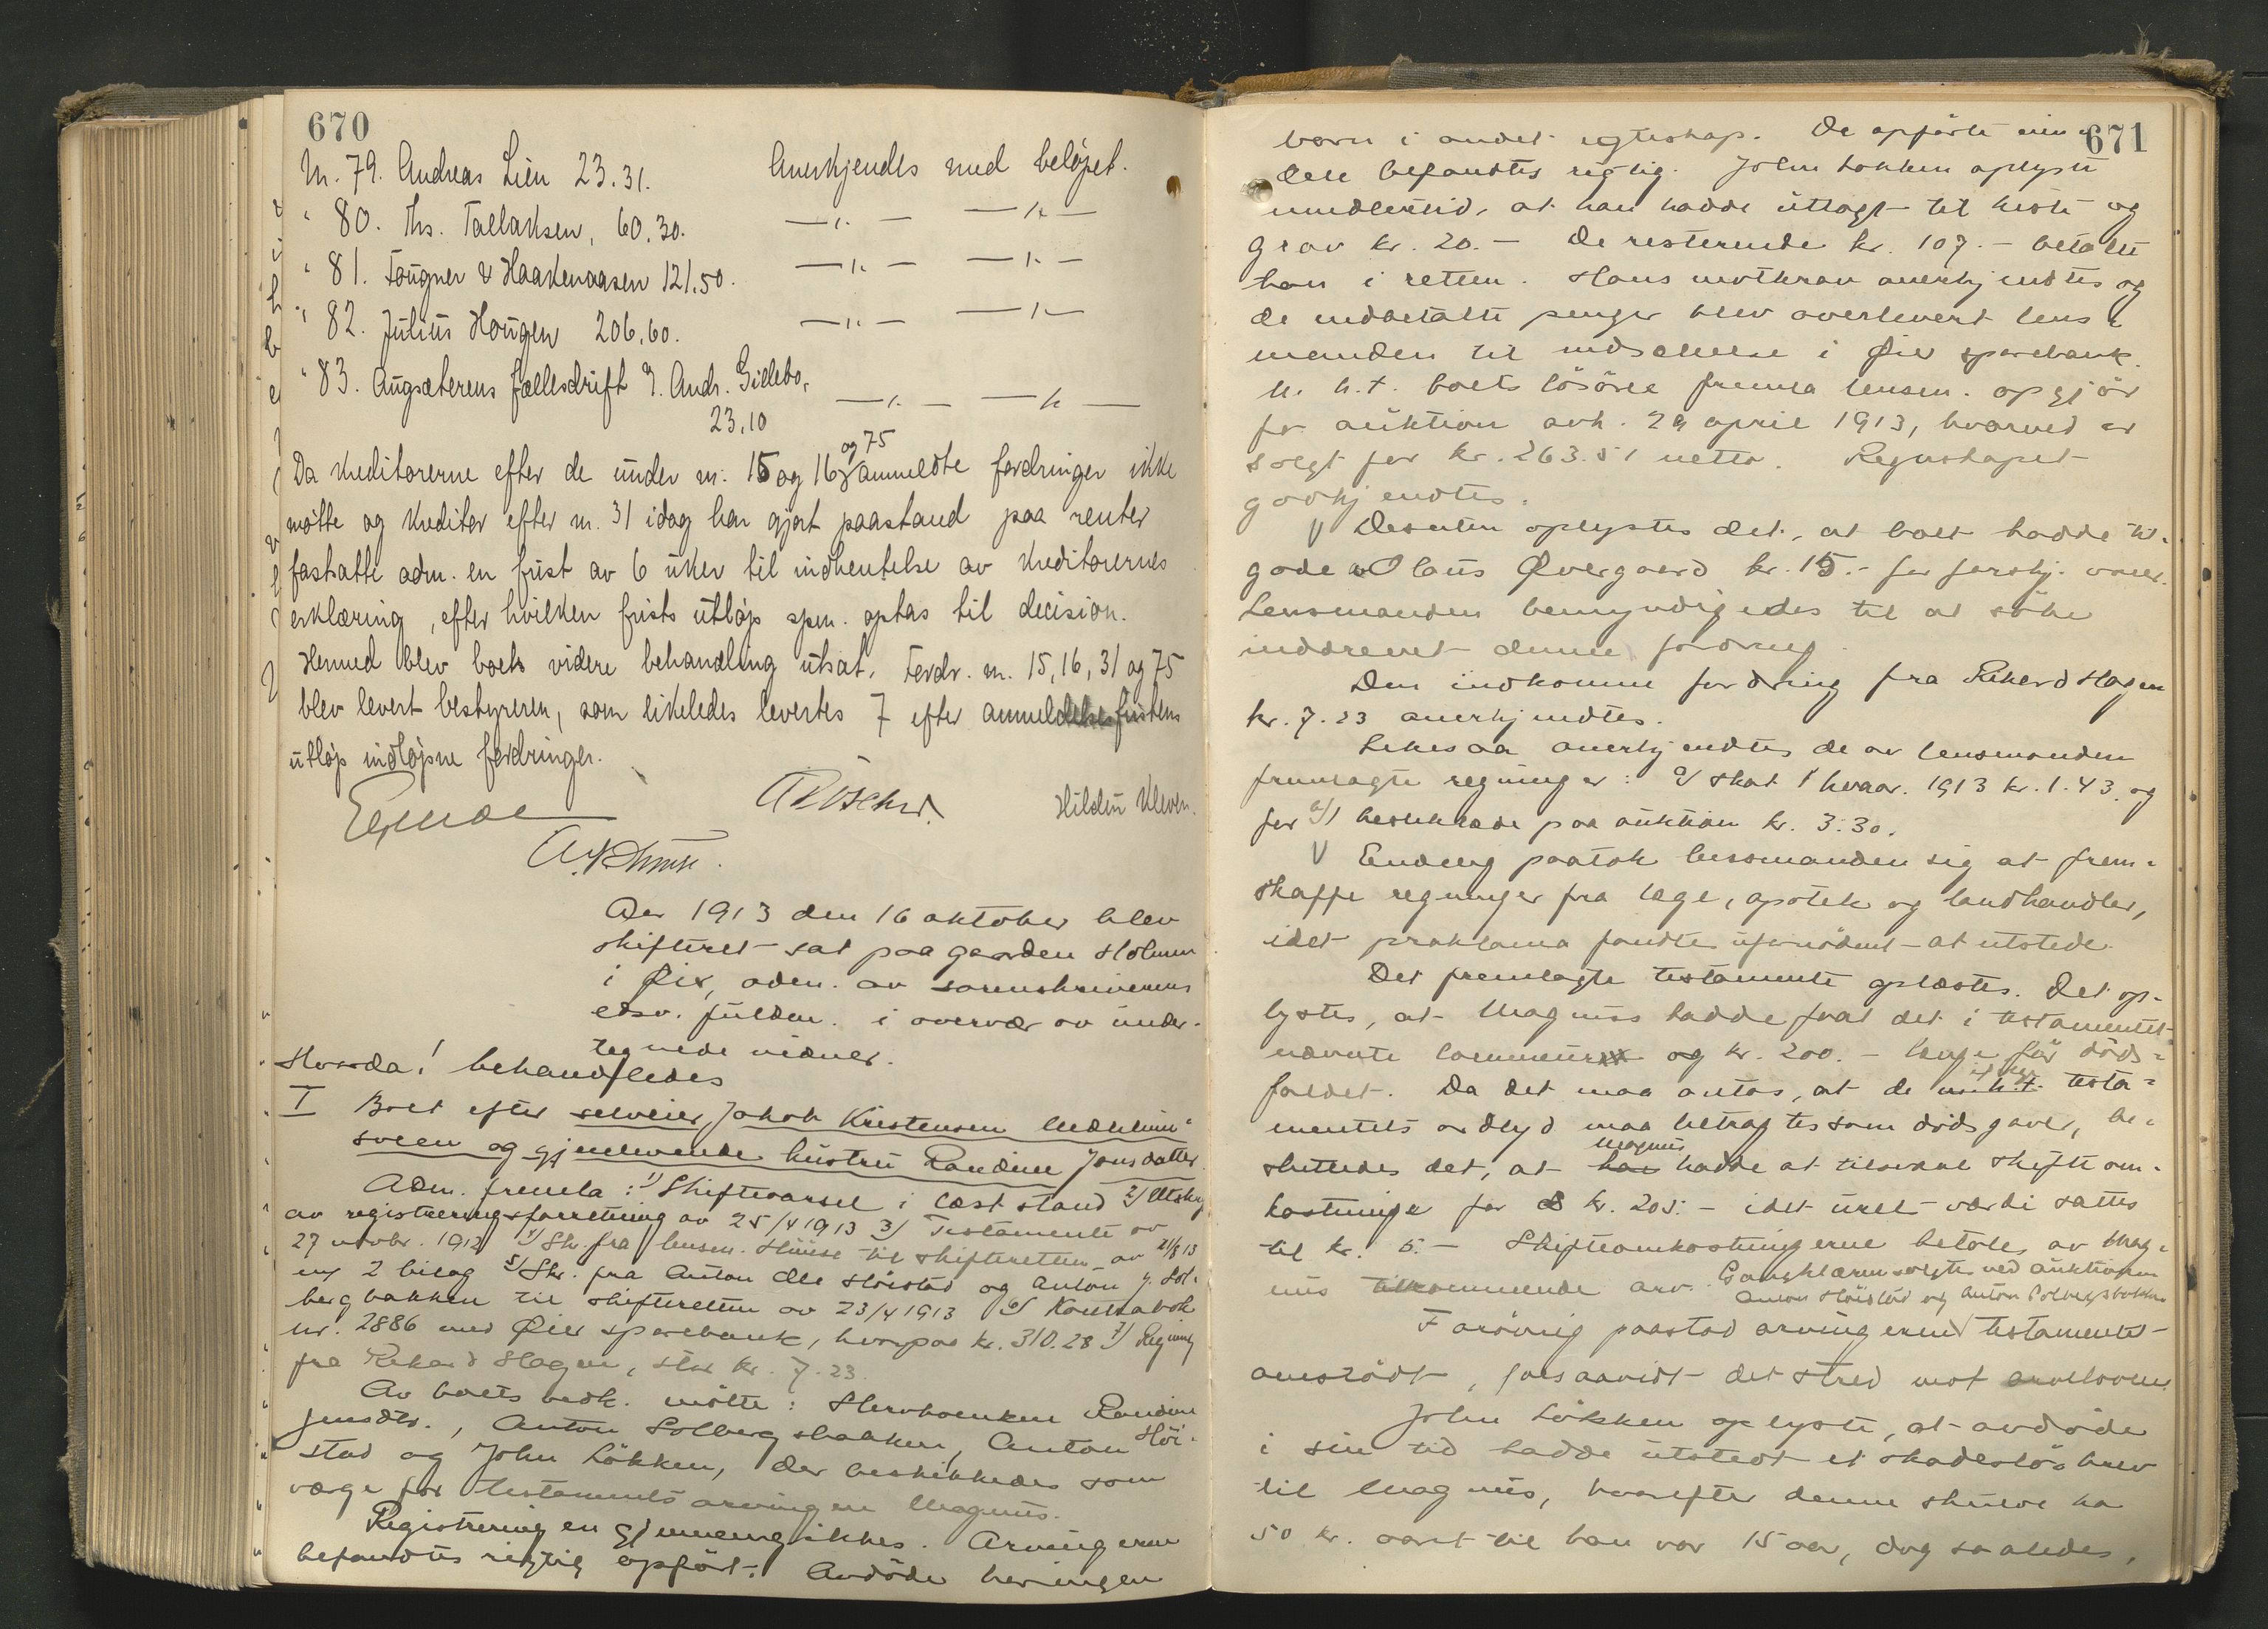 670
Nr. 79. Andreas Lien 23.31. Anerkjendes med beløpet.
" 80. Ths. Tallaksen, 60.30. —"— —"—
" 81. Tougner & Haakenaasen 121.50. —"— —"—
" 82. Julius Hougen 206.60. —"— —"—
" 83. Augsæterens fællesdrift v. Andr. Gillebo,
23.10 —"— —"—
og 75
Da kreditorerne efter de under nr. 15 og 16 anmeldte fordringer ikke
møtte og kreditor efter nr. 31 idag har gjort paastand paa renter
fastsatte adm. en frist av 6 uker til indhentelse av kreditorernes
erklæring, efter hvilken frists utløp spm. optas til decision.
Hermed blev boets videre behandling utsat. Fordr. nr. 15, 16, 31 og 75
blev levert bestyreren, som likeledes levertes 7 efter anmeldelsesfristens
utløp indløpne fordringer.
Hilden Kleven.
Aar 1913 den 16 oktober blev
skifteret sat paa gaarden Holmen
i Øier, adm. av sorenskriverens
edsv. fuldm. i overvær av under-
tegnede vidner.
Hvorda! behandledes
I Boet efter selveier Jakob Kristensen
sveen og gjenlevende hustru Randine Jonsdatter.
Adm. fremla: 1) Skiftevarsel i læst stand 2) Utskr.
av registreringsforretning av 25/4 1913 3) Testamente av
27 novbr. 1912 4) Skr. fra lensm. Huuse til skifteretten av 21/8 13
m/ 2 bilag 5) Skr. fra Anton Ole Høistad og Anton J. Sol-
bergbakken til skifteretten av 23/4 1913 6) Kontrabok
nr. 2886 med Øier sparebank, hvorpaa kr. 310.28 7) Regning
fra Rikard Hagen, stor kr. 7.23.
Av boets vedk. møtte: Stervboenken Randine
Jensdtr., Anton Solbergsbakken, Anton Høi-
stad og John Løkken, der beskikkedes som
værge for testamentsarvingen Magnus.
Registreringen gjennemgikkes. Arvingerne
befandtes rigtig opført. Avdøde har ingen
671
børn i andet egteskap. De opførte
dele befandtes rigtig. John Løkken oplyste
imidlertid, at han hadde utlagt til kiste og
grav kr. 20.- De resterende kr. 107.- betalte
han i retten. Hans motkrav anerkjendtes og
de indbetalte penger blev overlevert lens-
manden til indsættelse i Øier sparebank.
M. h. t. boets løsøre fremla lensm. opgjør
for auktion avh. 29 april 1913, hvorved er
solgt for kr. 263.51 netto. Regnskapet
godkjendtes.
V Desuten oplystes det, at boet hadde til-
gode av Olaus Øvergaard kr. 15.- for forskj. varer.
Lensmanden bemyndigedes til at søke
inddrevet denne fordring.
Den indkomne fordring fra Rikard Hagen
kr. 7.23 anerkjendtes.
Likesaa anerkjendtes de av lensmanden
fremlagte regninger: a/ skat 1 kvar. 1913 kr. 1.43. og
for b/ bestikræde paa auktion kr. 3.30.
V Endelig paatok lensmanden sig at frem-
skaffe regninger fra læge, apotek og landhandler,
idet proklama fandtes ufornødent at utstede.
Det fremlagte testamente oplæstes. Det op-
lystes, at Magnus hadde faat det i testamentet
nævnte lommeur og kr. 200.- længe før døds-
faldet. Da det maa antas, at de testa-
mentets ordlyd maa betragtes som dødsgaver, be-
Magnus
sluttedes det, at hadde at tilsvare skifteom-
kostninger for kr. 205.- idet urets værdi sattes
til kr. 5.- Skifteomkostningerne betales av Mag-
nus tilkommende arv. Gangklærne solgtes ved auktionen
Anton Høistad og Anton Solbergsbakken
Forøvrig paastod arvingerne testamentet
omstødt, forsaavidt det stred mot arveloven.
John Løkken oplyste, at avdøde
i sin tid hadde utstedt et skadesløsbrev
til Magnus, hvorefter denne skulde ha
50 kr. aaret til han var 15 aar, dog saaledes,